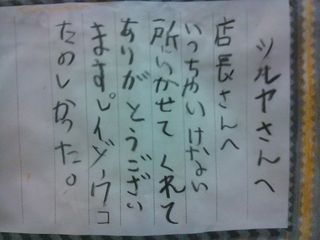 ツルヤさんへ
店長さんへ
いっちゃいけない
所にいかせてくれて
ありがとうござい
ます。レイゾーウコ
たのしかった。